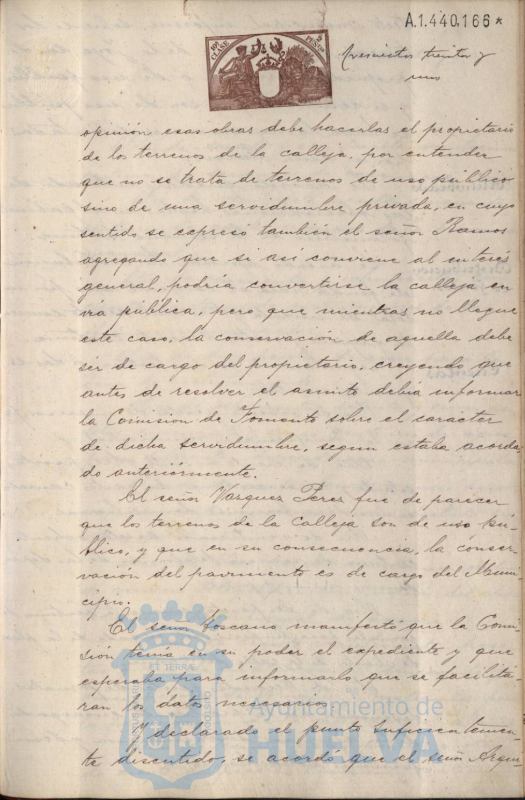 A.1.440.166*
10ª CLASE
2 PESETAS
trescientos treinta y
uno
opinión esas obras debe hacerlas el propietario
de los terrenos de la calleja, por entender
que no se trata de terrenos de uso público
sino de una servidumbre privada, en cuyo
sentido se expresó también el señor Ramos
agregando que si asi conviene al interés
general, podría convertirse la calleja en
vía pública, pero que mientras no llegue
este caso, la conservación de aquella debe
ser de cargo del propietario, creyendo que
antes de resolver el asunto debia informar
la Comision de Fomento sobre el caracter
de dicha servidumbre, segun estaba acorda-
do anteriórmente.
El señor Vazquez Perez fue de parecer
que los terrenos de la calleja son de uso pú-
blico, y que en su consecuencia, la conser-
vación del pavimento es de cargo del Muni-
cipio.
El señor Toscano manifestó que la Comi-
sión tenia en su poder el expediente y que
esperaba para informarlo que se facilita-
ran los datos necesarios.
Y declarado el punto suficientemen-
te discutido, se acordó que el señor Arqui-
Ayuntamiento de
HUELVA